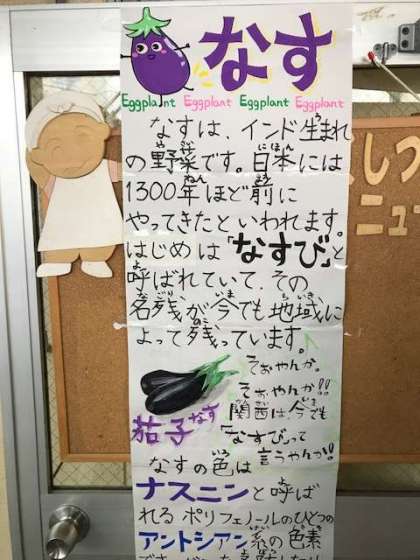 なす
Eggplant Eggplant Eggplant Eggplant
なすは、インド生まれ
の野菜です。日本には
1300年ほど前に
やってきたといわれます。
はじめは「なすび」と
呼ばれていて、その
名残が今でも地域に
よって残っています。
そおやんか。
そおやんか!!
関西は今でも
「なすび」って
言うやんか!!
茄子なす
なすの色は
ナスニンと呼ば
れるポリフェノールのひとつの
アントシアン系の色素
しつ
ニュー